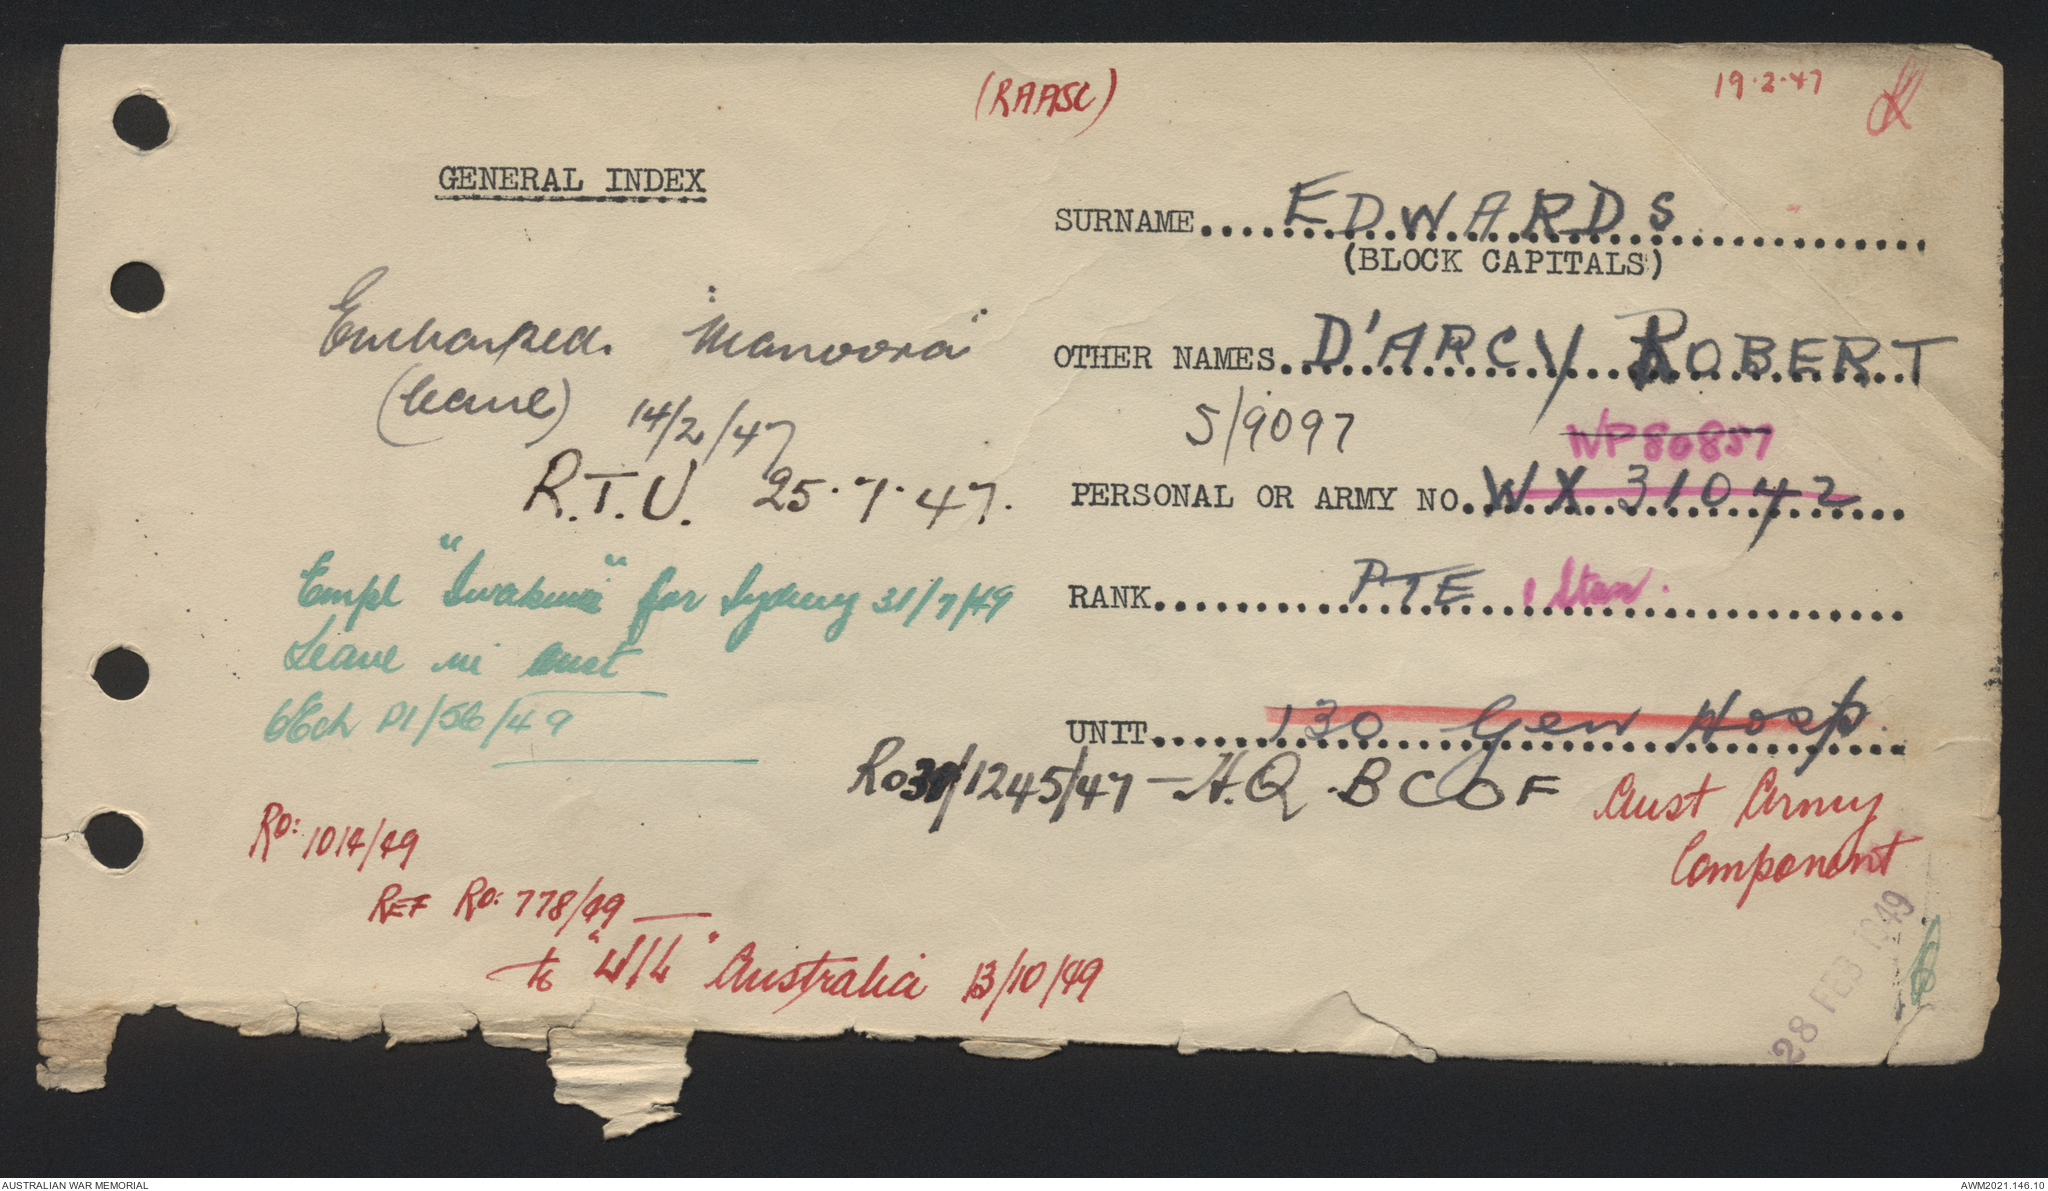 (RAASC)
19·2·47
GENERAL INDEX
SURNAME EDWARDS
(BLOCK CAPITALS)
OTHER NAMES D'ARCY ROBERT
5/9097
WP80857
PERSONAL OR ARMY NO. WX 31042
RANK PTE 1 Star.
UNIT 130 Gen Hosp.
Ro31/1245/47 - H.Q. BCOF
Aust Army
Component
28 FEB 1949
Embarked "Manoora"
(leave) 14/2/47
R.T.U. 25·7·47.
Empl "Iwakuni" for Sydney 31/7/49
Leave in Aust
6Ech P1/56/49
RO: 1014/49
REF RO: 778/49 —
to "W/L" Australia 13/10/49
AUSTRALIAN WAR MEMORIAL
AWM2021.146.10